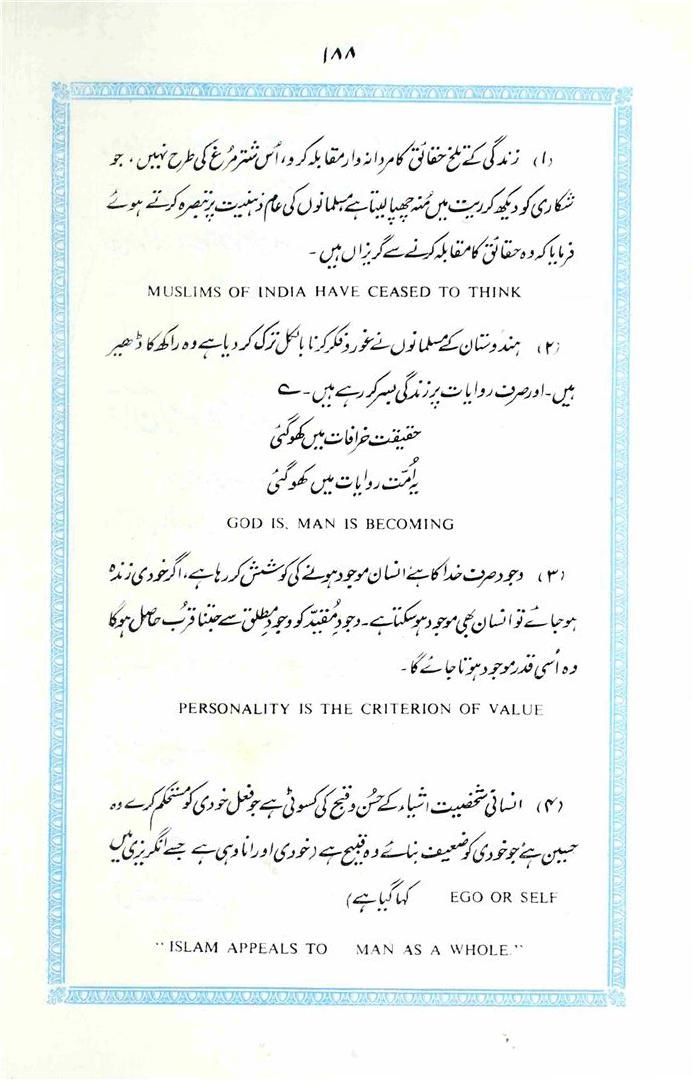 ۱۸۸
(۱) زندگی کے تلخ حقائق کا مردانہ وار مقابلہ کرو، اُس شتر مرُغ کی طرح نہیں، جو
شکاری کو دیکھ کر ریت میں مُنہ چھپا لیتا ہے مسلمانوں کی عام ذہنیت پر تبصرہ کرتے ہوئے
فرمایا کہ وہ حقائق کا مقابلہ کرنے سے گریزاں ہیں۔
MUSLIMS OF INDIA HAVE CEASED TO THINK
(۲) ہندوستان کے مسلمانوں نے غور و فکر کرنا بالکل ترک کر دیا ہے وہ راکھ کا ڈھیر
ہیں۔ اور صرف روایات پر زندگی بسر کر رہے ہیں۔ ے
حقیقت خرافات میں کھو گئی
یہ اُمّت روایات میں کھو گئی
GOD IS, MAN IS BECOMING
(۳) وجود صرف خدا کا ہے انسان موجود ہونے کی کوشش کر رہا ہے، اگر خودی زندہ
ہو جائے تو انسان بھی موجود ہو سکتا ہے۔ وجودِ مُقیّد کو وجودِ مطلق سے جتنا قُرب حاصل ہو گا
وہ اُسی قدر موجود ہوتا جائے گا۔
PERSONALITY IS THE CRITERION OF VALUE
(۴) انسانی شخصیت اشیاء کے حُسن و قبح کی کسوٹی ہے جو فعل خودی کو مستحکم کرے وہ
حسین ہے جو خودی کو ضعیف بنائے وہ قبیح ہے (خودی اور انا وہی ہے جسے انگریزی میں
EGO OR SELF کہا گیا ہے)
"ISLAM APPEALS TO MAN AS A WHOLE."